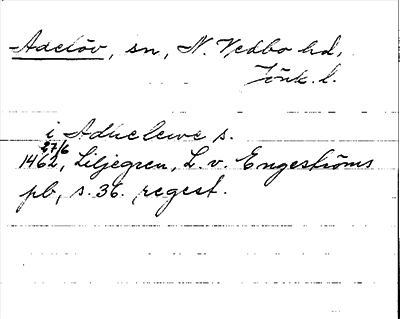 Adelöv, sn, N. Vedbo hd,
Jönk. l.
i Aduclewe s.
27/6
1462, Liljegren, L. v. Engeströms
pb, s. 36. regest.